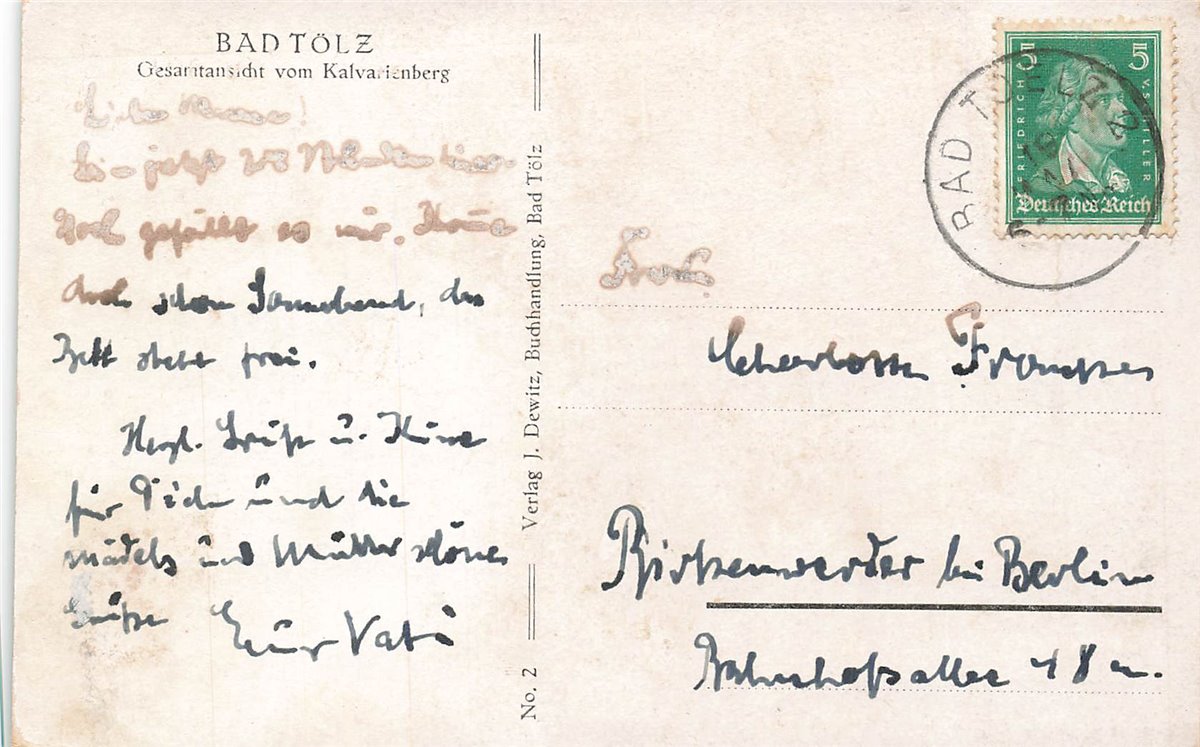 BAD TÖLZ
Gesamtansicht vom Kalvarienberg
jetzt
doch gefällt es mir.
doch schon Sonnabend, das
Bett steht frei.
Herzl. Grüße u. Küsse
für Dich und die
Mädels und Mutter schöne
Grüße Euer Vati
No. 2 Verlag J. Dewitz, Buchhandlung, Bad Tölz
5 5
FRIEDRICH V SCHILLER
Deutsches Reich
BAD TOELZ 2
Frau
Charlotte
Birkenwerder bei Berlin
Bahnhofsallee 18 a.